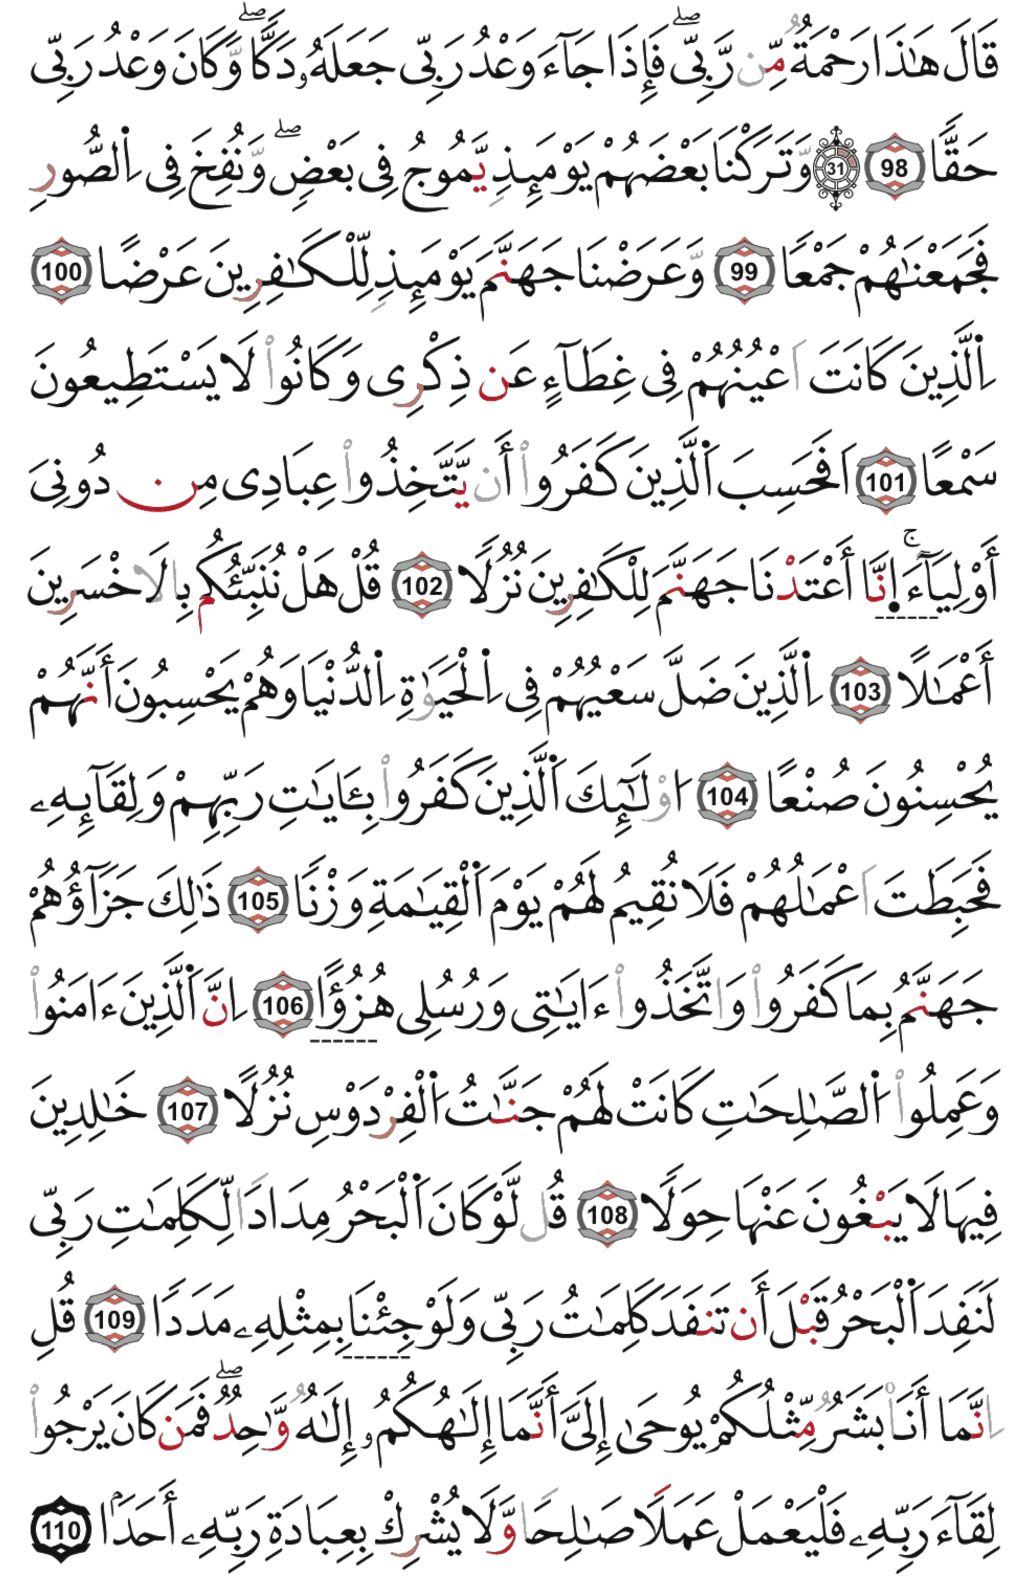 قَالَ هَٰذَا رَحْمَةٌ مِّن رَّبِّي ۖ فَإِذَا جَآءَ وَعْدُ رَبِّي جَعَلَهُۥ دَكًّا ۖ وَّكَانَ وَعْدُ رَبِّي
حَقًّا 98 31 وَّتَرَكْنَا بَعْضَهُمْ يَوْمَئِذٍ يَّمُوجُ فِي بَعْضٍ ۖ وَّنُفِخَ فِي اِ۬لصُّورِ
فَجَمَعْنَٰهُمْ جَمْعًا 99 وَّعَرَضْنَا جَهَنَّمَ يَوْمَئِذٍ لِّلْكَٰفِرِينَ عَرْضًا 100
اِ۬لَّذِينَ كَانَتَ اَعْيُنُهُمْ فِي غِطَآءٍ عَن ذِكْرِي وَكَانُواْ لَا يَسْتَطِيعُونَ
سَمْعًا 101 اَفَحَسِبَ اَ۬لَّذِينَ كَفَرُواْ أَن يَّتَّخِذُواْ عِبَادِي مِن دُونِيَ
أَوْلِيَآءَ ۚ اِ۪نَّا أَعْتَدْنَا جَهَنَّمَ لِلْكَٰفِرِينَ نُزُلًا 102 قُلْ هَلْ نُنَبِّئُكُم بِالَاخْسَرِينَ
أَعْمَٰلًا 103 اِ۬لَّذِينَ ضَلَّ سَعْيُهُمْ فِي اِ۬لْحَيَوٰةِ اِ۬لدُّنْيَا وَهُمْ يَحْسِبُونَ أَنَّهُمْ
يُحْسِنُونَ صُنْعًا 104 اَوْلَٰٓئِكَ اَ۬لَّذِينَ كَفَرُواْ بِـَٔايَٰتِ رَبِّهِمْ وَلِقَآئِهِۦ
فَحَبِطَتَ اَعْمَٰلُهُمْ فَلَا نُقِيمُ لَهُمْ يَوْمَ اَ۬لْقِيَٰمَةِ وَزْنًا 105 ذَٰلِكَ جَزَآؤُهُمْ
جَهَنَّمُ بِمَا كَفَرُواْ وَاتَّخَذُواْ ءَايَٰتِي وَرُسُلِي هُزُؤًا 106 اِنَّ اَ۬لَّذِينَ ءَامَنُواْ
وَعَمِلُواْ اُ۬لصَّٰلِحَٰتِ كَانَتْ لَهُمْ جَنَّٰتُ اَ۬لْفِرْدَوْسِ نُزُلًا 107 خَٰلِدِينَ
فِيهَا لَا يَبْغُونَ عَنْهَا حِوَلًا 108 قُل لَّوْ كَانَ اَ۬لْبَحْرُ مِدَادًا لِّكَلِمَٰتِ رَبِّي
لَنَفِدَ اَ۬لْبَحْرُ قَبْلَ أَن تَنفَدَ كَلِمَٰتُ رَبِّي وَلَوْ جِئْنَا بِمِثْلِهِۦ مَدَدًا 109 قُلِ
اِنَّمَا أَنَا۠ بَشَرٌ مِّثْلُكُمْ يُوحَىٰ إِلَيَّ أَنَّمَا إِلَٰهُكُمُۥ إِلَٰهٌ وَّٰحِدٌ ۖ فَمَن كَانَ يَرْجُواْ
لِقَآءَ رَبِّهِۦ فَلْيَعْمَلْ عَمَلًا صَٰلِحًا وَّلَا يُشْرِكْ بِعِبَادَةِ رَبِّهِۦ أَحَدًا 110